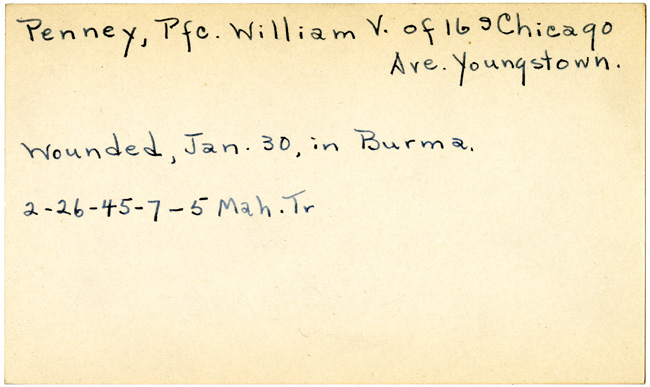 Penney, Pfc. William V. of 169 Chicago
Ave. Youngstown.
Wounded, Jan. 30, in Burma.
2-26-45-7-5 Mah. Tr